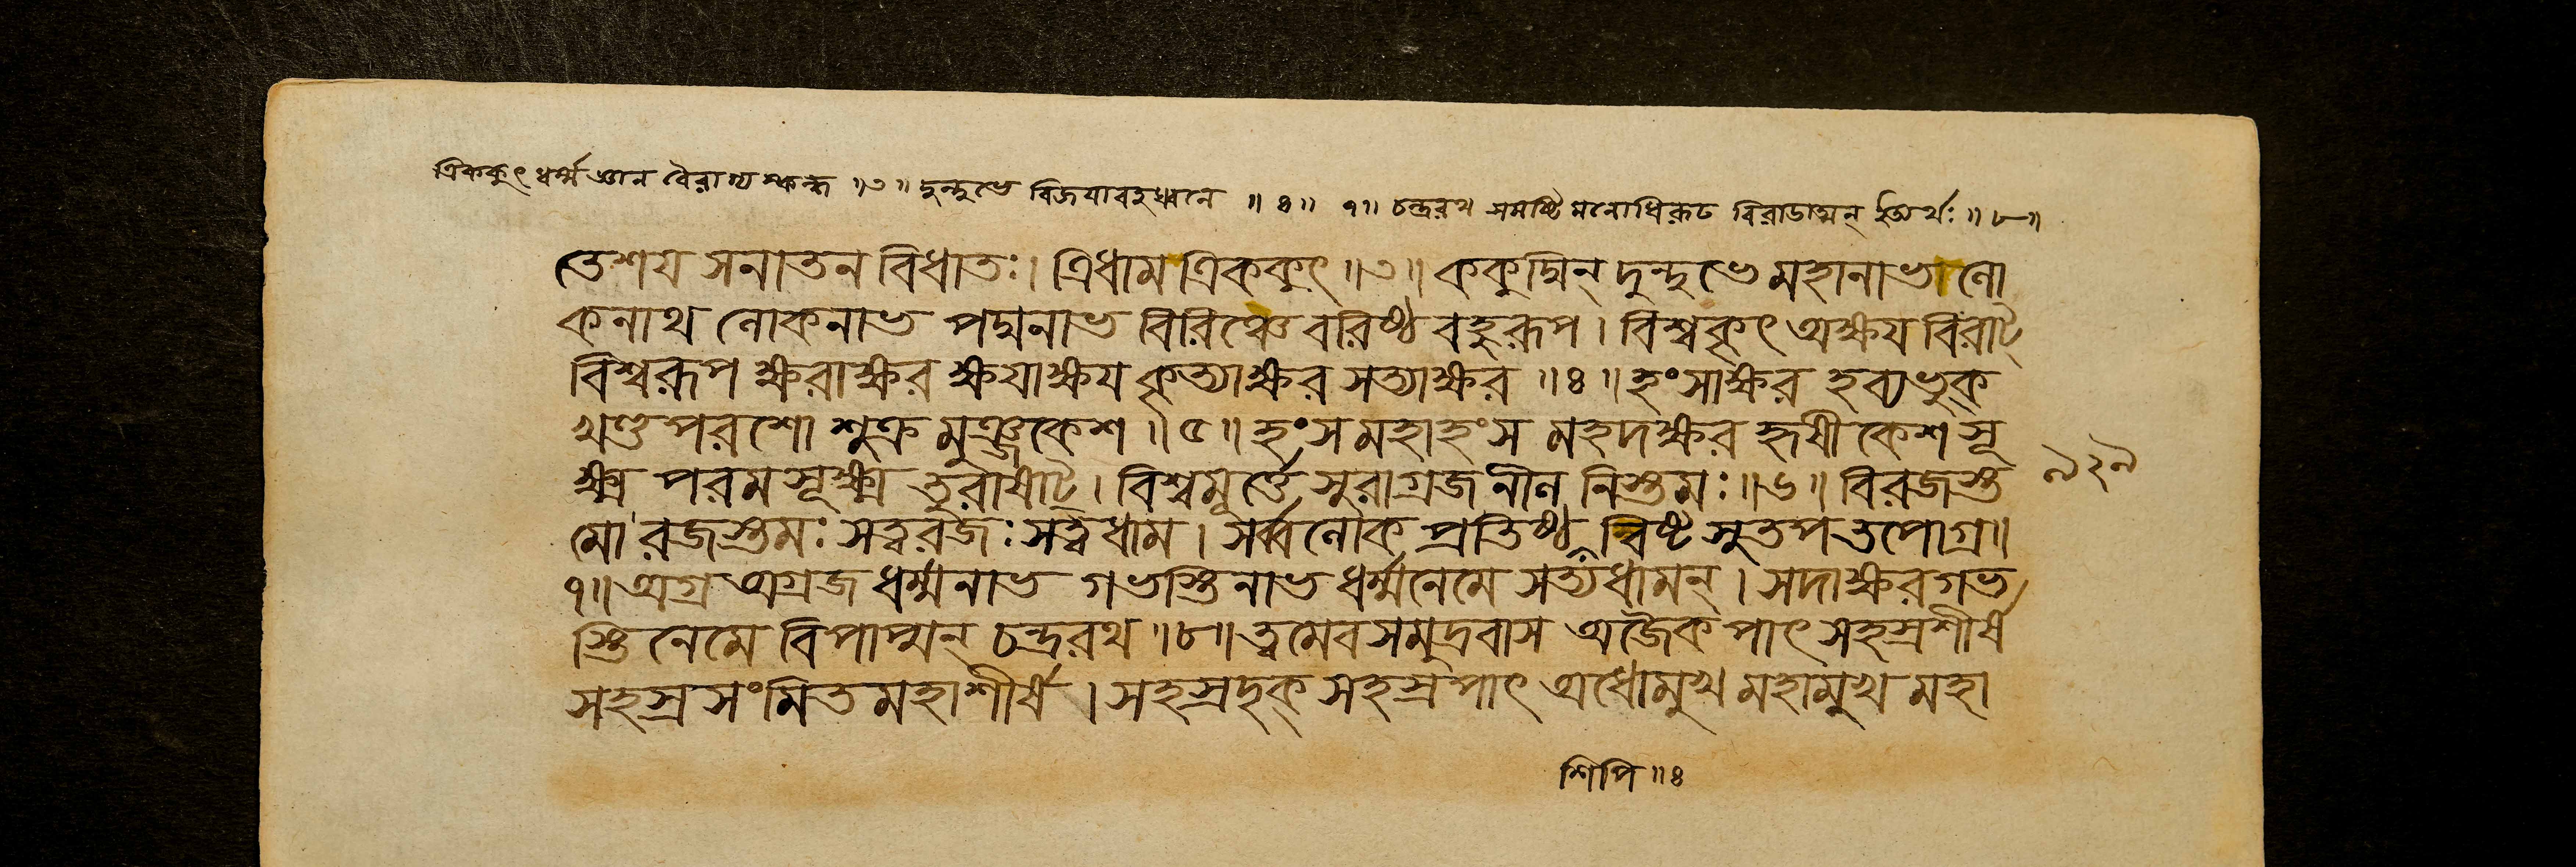 ত্রিককুৎ ধর্ম্মজ্ঞান বৈরাগ্য স্কন্ধ ॥৩॥ দুন্দুভে বিজযাবহধ্বনে ॥ ৪॥ ৭॥ চন্দ্ররথ সমষ্টি মনোধিরূঢ বিরাডাত্মন্ অর্থঃ ॥৮॥
তেশয সনাতন বিধাতঃ। ত্রিধাম ত্রিককুৎ ॥৩॥ ককুদ্মিন্ দুন্দুভে মহানাভ লো
কনাথ লোকনাভ পদ্মনাভ বিরিঞ্চে বরিষ্ঠ বহুরূপ। বিশ্বকৃৎ অক্ষয বিরাট্
বিশ্বরূপ ক্ষরাক্ষর ক্ষযাক্ষয কৃত্যাক্ষর সত্যাক্ষর ॥৪॥ হংসাক্ষর হব্যভুক্
খণ্ডপরশো শুক্র মুঞ্জকেশ ॥৫॥ হংস মহাহংস মহদক্ষর হৃষীকেশ সূ
ক্ষ্ম পরম সূক্ষ্ম তুরাষাট্। বিশ্বমূর্ত্তে সুরাগ্রজ নীল নিস্তমঃ ॥৬॥ বিরজস্ত
মো রজস্তমঃ সত্ত্বরজঃ সত্ত্বধাম। সর্ব্বলোক প্রতিষ্ঠ শিবিষ্ট সুতপ তপোগ্র॥
৭॥ অগ্র অগ্রজ ধর্ম্মনাভ গভস্তিনাভ ধর্ম্মনেমে সত্যধামন্। সদাক্ষর গভ
স্তিনেমে বিপাপ্মন্ চন্দ্ররথ ॥৮॥ ত্বমেব সমুদ্রবাস অজৈকপাৎ সহস্রশীর্ষ
সহস্রসংমিত মহাশীর্ষ। সহস্রদৃক্ সহস্রপাৎ অধোমুখ মহামুখ মহা
৯২৯
শিপি ॥৪